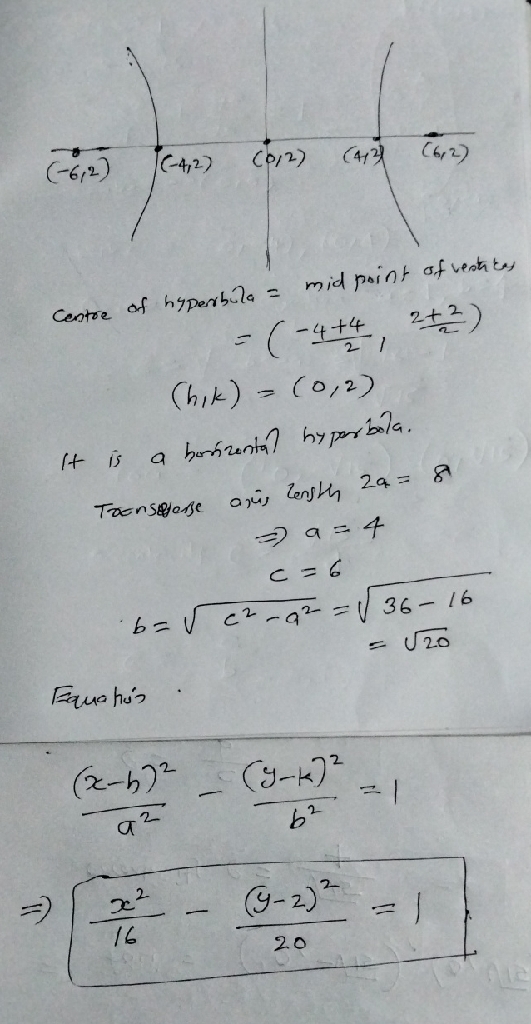 (-6,2) (-4,2) (0,2) (4,2) (6,2)
Centre of hyperbola = mid point of vertices
= (-4+4/2, 2+2/2)
(h,k) = (0,2)
It is a horizontal hyperbola.
Transverse axis length 2a = 8
⇒ a = 4
c = 6
b = √c²-a² = √36-16
= √20
Equation
(x-h)²/a² - (y-k)²/b² = 1
⇒ x²/16 - (y-2)²/20 = 1